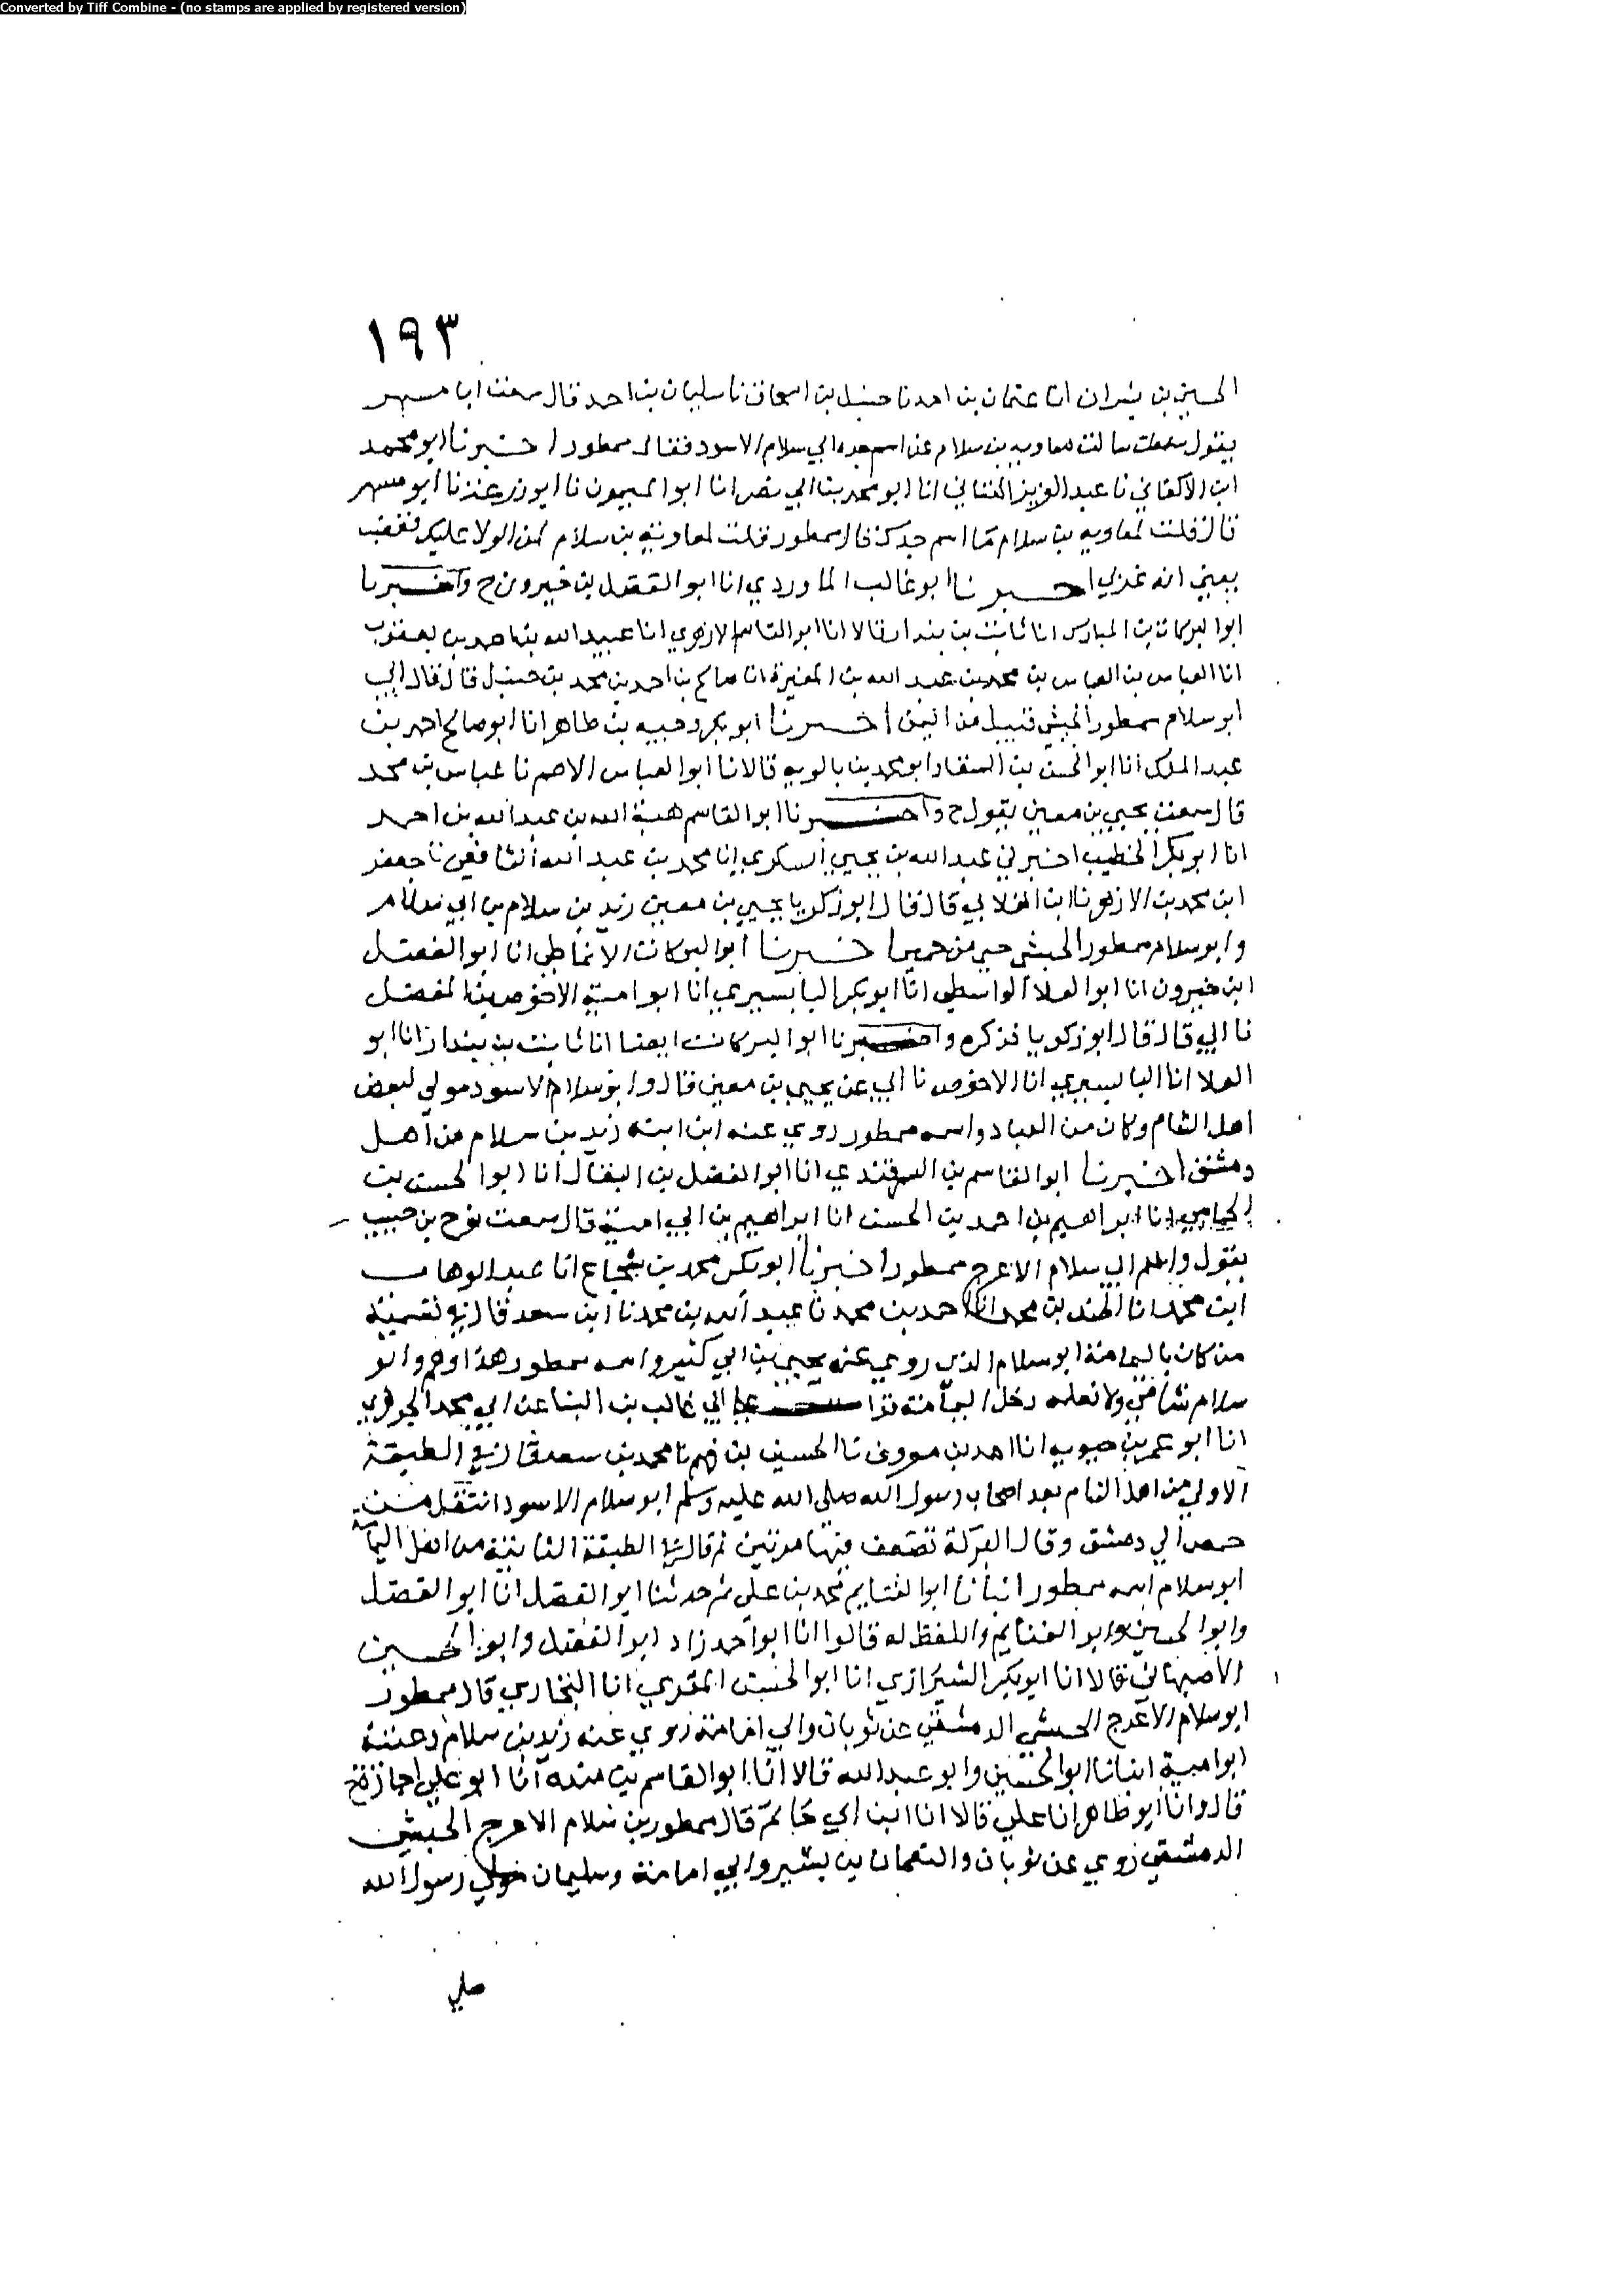 Converted by Tiff Combine - (no stamps are applied by registered version)
١٩٣
الحسين بن بشران انا عثمان بن احمد نا حنبل بن اسحاق نا سليمان بن احمد قال سمعت ابا مسهر
يقول سالت معاويه بن سلام عن اسم جده ابي سلام الاسود فقال ممطور اخبرنا ابو محمد
ابن الاكفاني نا عبد العزيز الكتاني انا ابو محمد بن ابي نصر انا ابو الميمون نا ابو زرعة نا ابو مسهر
قال قلت لمعاويه بن سلام ما اسم جدك قال ممطور قلت لمعاوية بن سلام لمن الولا عليك فغضب
يعني انه عربي اخبرنا ابو غالب الماوردي انا ابو الفضل بن خيرون ح واخبرنا
ابوا البركات بن المبارك انا ثابت بن بندار قالا انا ابو القاسم الازهري انا عبيد الله بن احمد بن يعقوب
انا العباس بن العباس بن محمد بن عبد الله بن المغيرة انا صالح بن احمد بن محمد بن حنبل قال قال ابي
ابو سلام ممطور الحبشي قبيل من اليمن اخبرنا ابو بكر وجيه بن طاهر انا ابو صالح احمد بن
عبد الملك انا ابو الحسن بن السقا وابو محمد بن بالويه قالا نا ابو العباس الاصم نا عباس بن محمد
قال سمعت يحيي بن معين يقول ح واخبرنا ابو القاسم هبة الله بن عبد الله بن احمد
انا ابو بكر الخطيب اخبرني عبد الله بن يحيي السكري انا محمد بن عبد الله الشافعي نا جعفر
ابن محمد بن الازهر نا ابن الغلابي قال قال ابو زكريا يحيي بن معين زيد بن سلام بن ابي سلام
وابو سلام ممطور الحبشي حي من حمير اخبرنا ابو البركات الانماطي انا ابو الفضل
ابن خيرون انا ابو العلا الواسطي انا ابو بكر البابسيري انا ابو امية الاحوص بن المفضل
نا ابي قال قال ابو زكريا فذكره واخبرنا ابو البركات ايضا انا ثابت بن بندار انا ابو
العلا انا البابسيري انا الاحوص نا ابي عن يحيي بن معين قال وابو سلام الاسود مولي لبعض
اهل الشام وكان من العباد واسمه ممطور روي عنه ابن ابنه زيد بن سلام من اهل
دمشق اخبرنا ابو القاسم بن السمرقندي انا ابو الفضل بن البقال انا ابو الحسن بن
الحمامي انا ابراهيم بن احمد بن الحسن انا ابراهيم بن ابي امية قال سمعت نوح بن حبيب
يقول واسم ابي سلام الاعرج ممطور اخبرنا ابو بكر محمد بن شجاع انا عبد الوهاب
ابن محمد انا الحسن بن محمد انا احمد بن محمد نا عبيد الله بن محمد نا ابن سعد قال في تسمية
من كان باليمامة ابو سلام الذي روي عنه يحيي بن ابي كثير واسمه ممطور هذا وهم وابو
سلام شامي ولا نعلمه دخل اليمامة قرات علي ابي غالب بن البنا عن ابي محمد الجوهري
انا ابو عمر بن حيويه انا احمد بن معروف نا الحسين بن فهم نا محمد بن سعد قال في الطبقة
الاولي من اهل الشام بعد اصحاب رسول الله صلي الله عليه وسلم ابو سلام الاسود انتقل من
حمص الي دمشق وقال البركة تضعف فيها مرتين ثم قال في الطبقة الثانية من اهل اليمامة
ابو سلام اسمه ممطور انبانا ابو الغنايم محمد بن علي ثم حدثنا ابو الفضل انا ابو الفضل
وابو الحسين وابو الغنايم واللفظ له قالوا انا ابو احمد زاد ابو الفضل وابو الحسين
الاصبهاني قالا انا ابو بكر الشيرازي انا ابو الحسن المقري انا البخاري قال ممطور
ابو سلام الاعرج الحبشي الدمشقي عن ثوبان وابي امامة روي عنه زيد بن سلام وكنيته
ابو امية انبانا ابو الحسين وابو عبد الله قالا انا ابو القاسم بن منده انا ابو علي اجازة ح
قال وانا ابو طاهر انا علي قالا انا ابن ابي حاتم قال ممطور بن سلام الاعرج الحبشي
الدمشقي روي عن ثوبان والنعمان بن بشير وابي امامة وسليمان مولي رسول الله
صلي